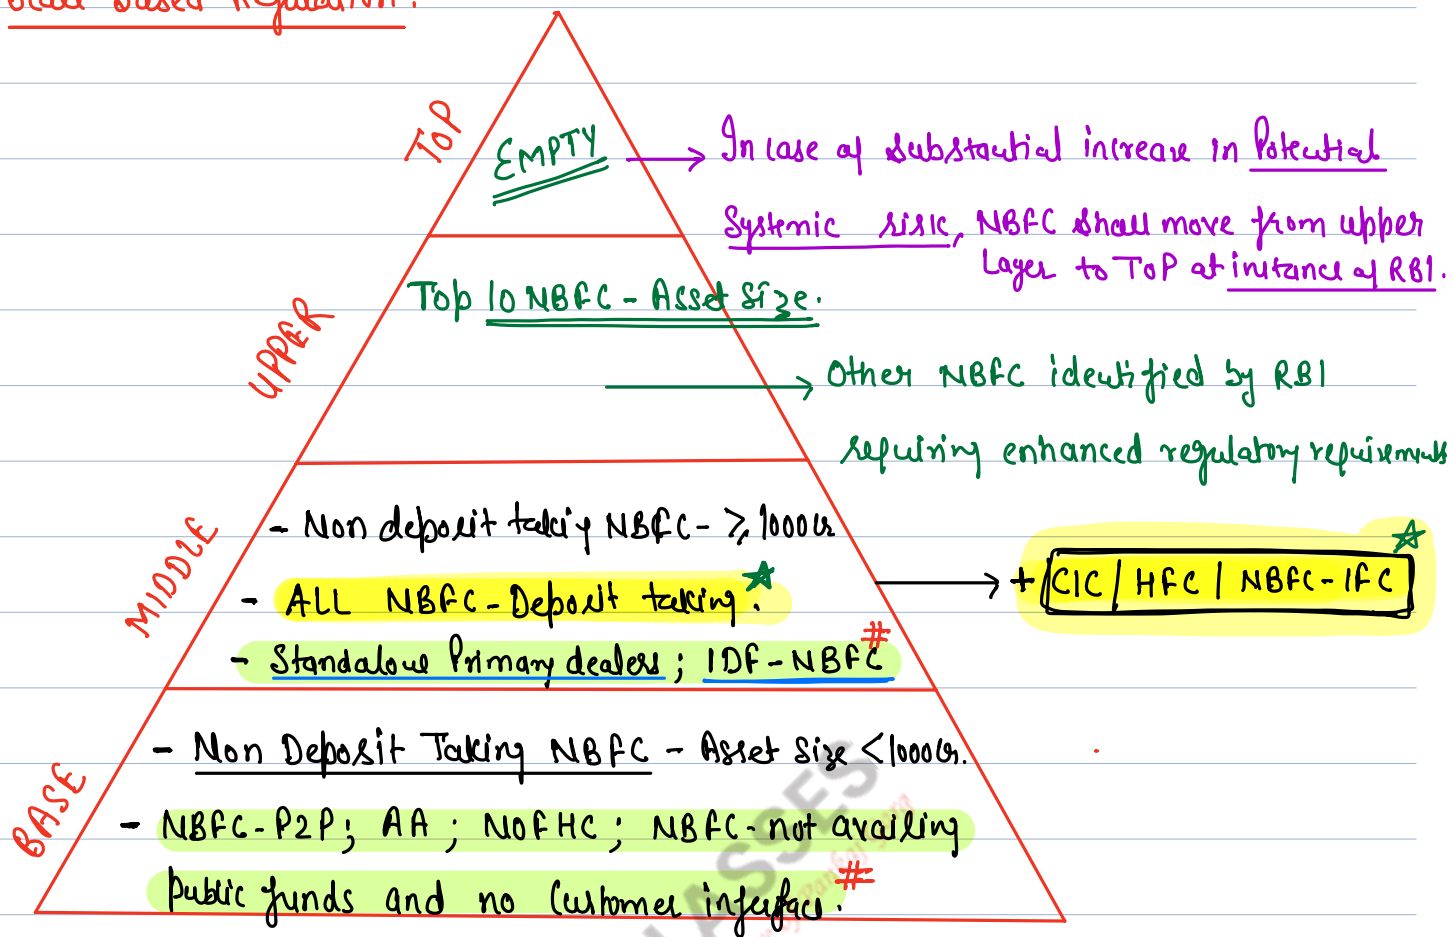 Scale Based Regulation:
TOP
EMPTY
In case of substantial increase in Potential
Systemic risk, NBFC shall move from upper
Layer to TOP at instance of RBI.
UPPER
Top 10 NBFC - Asset Size.
Other NBFC identified by RBI
requiring enhanced regulatory requirements
MIDDLE
- Non deposit taking NBFC - ≥ 1000 cr
- ALL NBFC - Deposit taking.
+ CIC / HFC / NBFC - IFC
- Standalone Primary dealers ; IDF - NBFC #
BASE
- Non Deposit Taking NBFC - Asset Size < 1000 Cr.
- NBFC - P2P ; AA ; NOFHC ; NBFC - not availing
Public funds and no Customer interface. #
LASSES